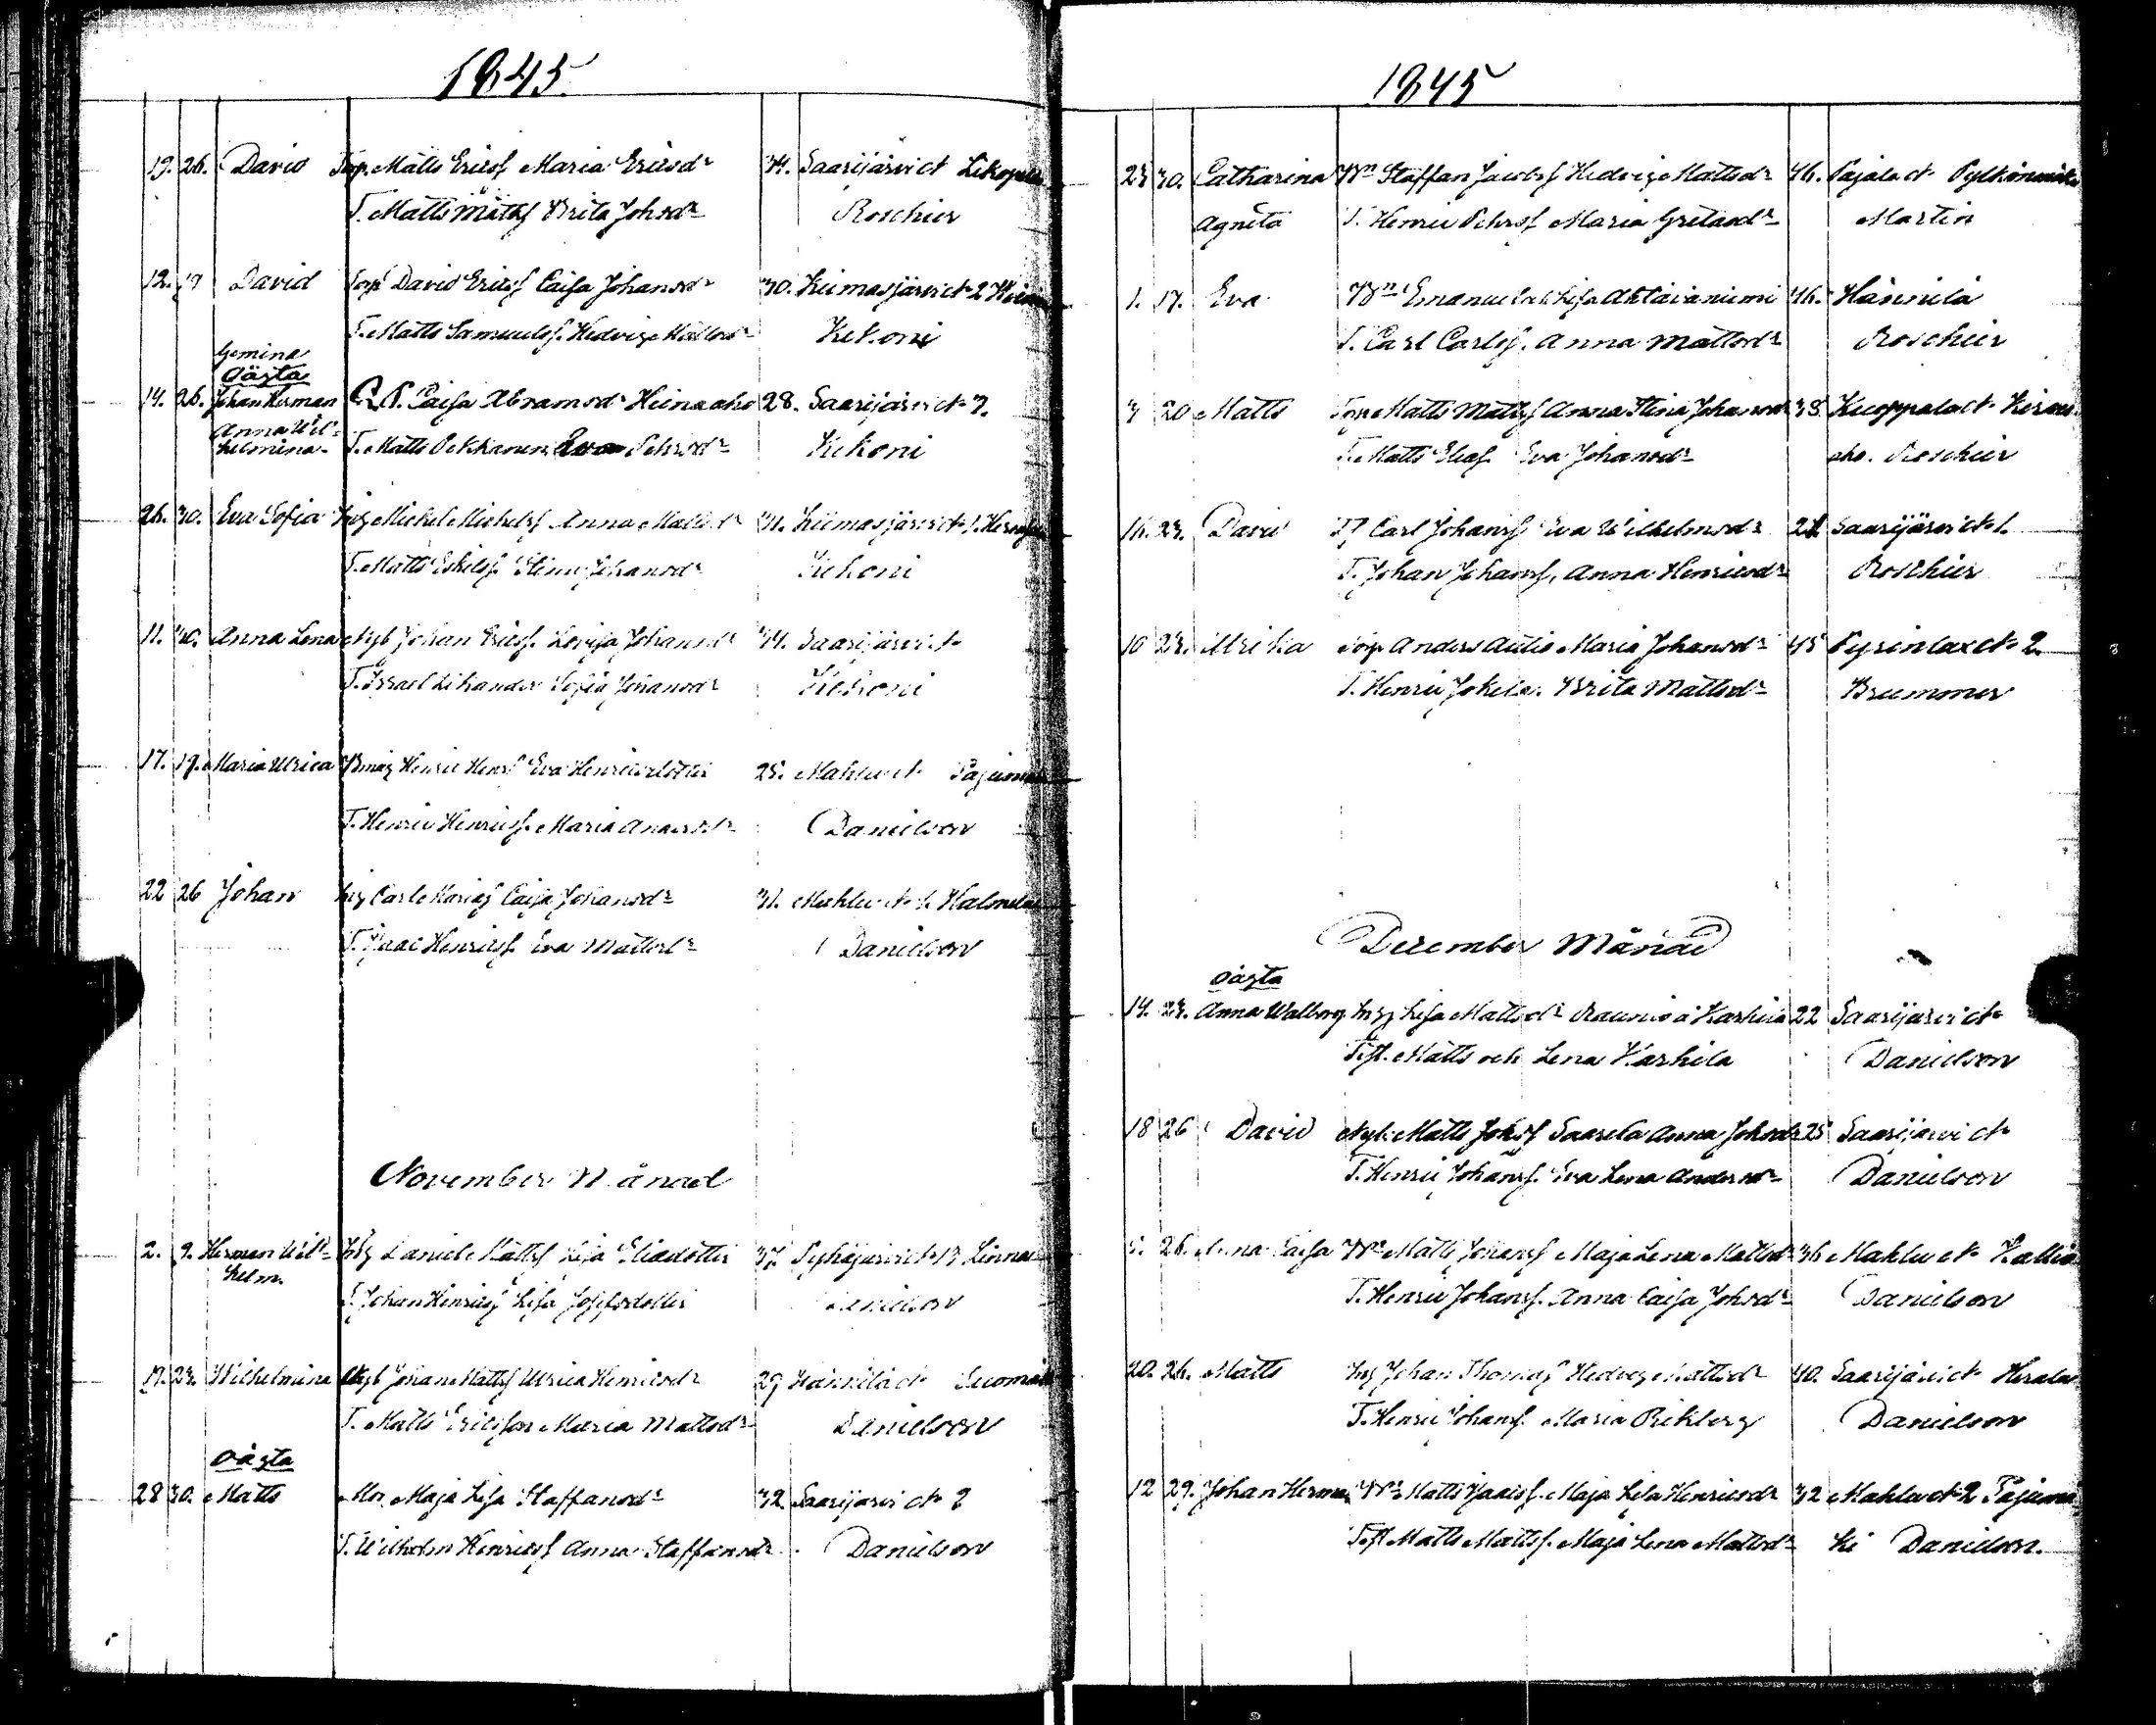 1845.
19. 26. David Torp. Matts Ericsf Maria Ericsdr 34. Saarijärvi ct
T. Matts Matsf Brita Johsdr Roschier
12. 19 David Torp David Ericsf Caisa Johansdr 30. Kiimasjärvi ct 2
T. Matts Samuelsf. Hedvig Mattsdr Kekoni
Gemina
oägta
14. 26. Johan Herman Caisa Abramsdr Heinaaho 28. Saarijärvi ct 2.
Anna Wil-
helmina. T. Matts Pekkanen Eva Pehrsdr Kekoni
26. 30. Eva Sofia Ing Michel Michelsf Anna Mattsdr 41. Kiimasjärvi ct 1.
T. Matts Eskelsf Stina Johansdr Kekoni
11. 30. Anna Lena Nyb Johan Ericsf. Lovisa Johansdr 34. Saarijärvi ct
T. Israel Likander Sofia Johansdr Kekoni
17. 19. Maria Ulrica Henric Henrsf Eva Henricsdotter 25. Mahlu ct
T. Henric Henricsf. Maria Andersdr Danielson
22 26 Johan Ing Carl Caisa Johansdr 31. Mahlu ct 1.
T. Isaac Henricsf Eva Mattsdr Danielson
November Månad
2. 9. Herman Wil- Ing Daniel Mattsf Lisa Eliadotter 37 Pyhäjärvi ct 13
helm. T. Johan Henricsf Lisa Josefsdotter Danielson
17. 23. Wilhelmina Nyb Johan Mattsf Ulrica Henricsdr 29 Hännilä ct
T. Matts Ericsson Maria Mattsdr Danielson
oägta
28 30. Matts Mor. Maja Lisa Staffansdr 32 Saarijärvi ct 2
T. Wilhelm Henricsf Anna Staffansdr Danielson
1845
23 30. Catharina Bn Staffan Jacobsf Hedvig Mattsdr 46. Pajala ct
Agneta T. Henric Pehrsf Maria Martin
1. 17. Eva Bn Emanuel Lisa 46. Hännilä
T. Carl Carlsf. Anna Mattsdr Roschier
3 20 Matts Torp Matts Matsf Anna Stina Johansdr 38 Kuoppala ct
T. Matts Eliaf Eva Johansdr aho. Roschier
16. 23. David Carl Johansf Eva Wilhelmsdr 21 Saarijärvi ct 1.
T. Johan Johansf, Anna Henricsdr Roschier
10 23. Ulrika Torp Anders Autio Maria Johansdr 45 Pyrinlax ct 2
T. Henric Jokela. Brita Mattsdr Brummer
December Månad
oägta
14. 23. Anna Walborg Inhyz Lisa Mattsdr Raunio å Karhila 22 Saarijärvi ct
Test. Matts och Lena Karhila Danielson
18 26 David Nyb. Matts Johsf Saarela Anna Johsdr 25 Saarijärvi ct
T. Henric Johansf. Eva Lena Andersdr Danielson
5. 26. Anna Caisa Bn Matts Johansf Maja Lena Mattsdr 36 Mahlu ct Kallio
T. Henric Johansf. Anna Caisa Johsdr Danielson
20. 26. Matts Inh Johan Thomasf Hedvig Mattsdr 40. Saarijärvi ct
T. Henric Johansf. Maria Rikberg Danielson
12 29. Johan Herman Bn Matts Isaacsf. Maja Lisa Henricsdr 32 Mahlu ct 2 Pajumä
Test Matts Mattsf. Maja Lena Mattsdr ki Danielson.